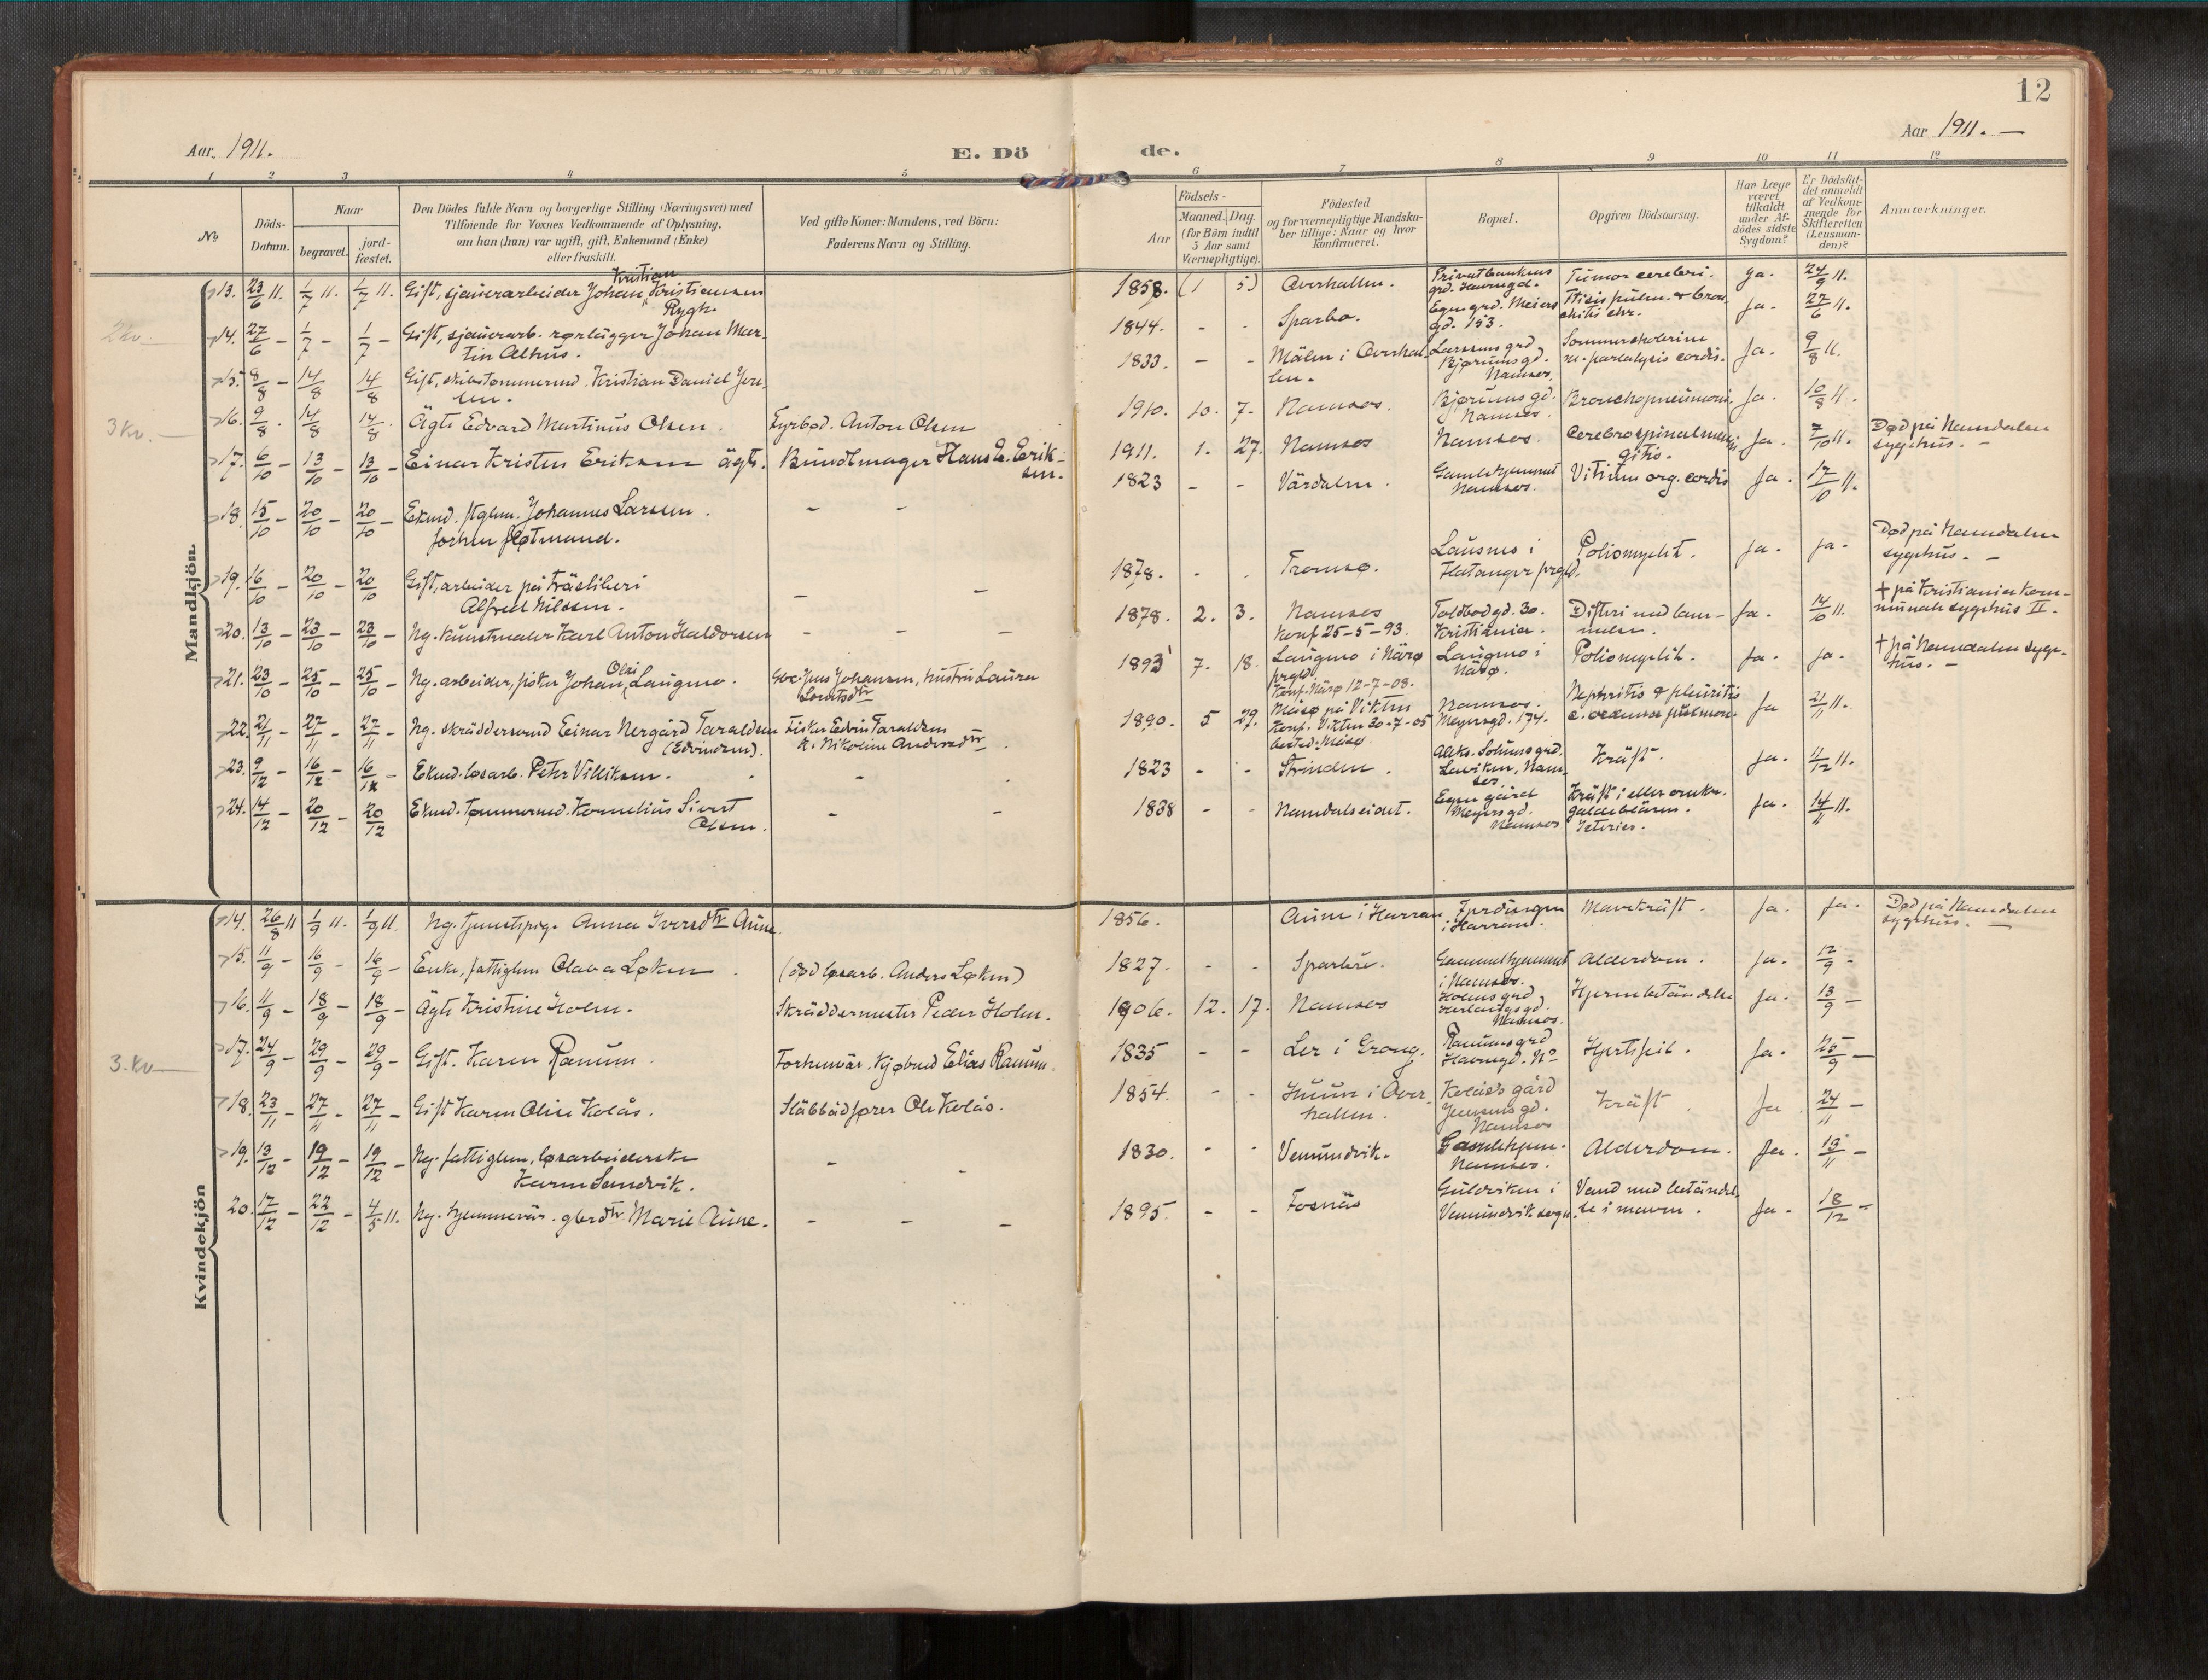 12
Aar 1911.
Aar 1911. —
E. Dö de.
1 2 3 4 5 6 7 8 9 10 11 12
No.
Döds-
Datum.
Naar
begravet.
jord-
fæstet.
Den Dödes fulde Navn og borgerlige Stilling (Næringsvei) med
Tilföiende for Voxnes Vedkommende af Oplysning,
om han (hun) var ugift, gift, Enkemand (Enke)
eller fraskilt.
Ved gifte Koner: Mandens, ved Börn:
Faderens Navn og Stilling.
Födsels-
Aar
Maaned. Dag.
(for Börn indtil
5 Aar samt
Værnepligtige).
Födested
og for værnepligtige Mandska-
ber tillige: Naar og hvor
konfirmeret.
Bopæl.
Opgiven Dödsaarsag.
Har Læge
været
tilkaldt
under Af-
dödes sidste
Sygdom?
Er Dödsfal-
det anmeldt
af Vedkom-
mende for
Skifteretten
(Lensman-
den)?
Anmærkninger.
Mandkjön.
13. 23/6 11. 1/7 11. 1/7 11. Gift, sjauerarbeider Johan Kristian Kristiansen
Rygh. 1858. (1 5.) Overhallen. Privatbankens
grd. Havnegd. Tumor cerebri. ja. 24/9 11.
2 kv.
14. 27/6 - 1/7 - 1/7 - Gift, sjauerarb. rørlægger Johan Mar-
tin Alhus. 1844. - - Sparbo. Egen grd. Meiers
gd. 153. Ftisis pulm. & bron
chitis chr. ja. 27/6 11.
15. 8/8 - 14/8 14/8 Gift, skibstømmermd. Kristian Daniel
1833. - - Mälen i Overhal-
len. Larssens grd
Bjørumsgd.
Namsos. Sommercholerine
m. paralysis cordis. Ja. 9/8 11.
16. 9/8. 14/8 14/8. Ägte Edvard Martinus Olsen. Fyrbød. Anton Olsen 1910. 10. 7. Namsos. Bjørumsgd.
Namsos. Bronchopneumoni. Ja. 10/8 11.
3 Kv. —
17. 6/10 - 13/10 - 13/10 - Einar Kristen Eriksen ägte. Bundtmager Hans E. Erik-
sen. 1911. 1. 27. Namsos Namsos. Cerebrospinalmenin
gitis. Ja. 7/10 11. Død på Namdalen
sygehus. —
18. 15/10 - 20/10 - 20/10 - Ekmd. ftglm. Johannes Larsen.
forhen fløtmand. - - 1823 - - Värdalen. Gamlehjemmet
Namsos. Vitium org. cordis Ja. 17/10 11.
19. 16/10 - 20/10 - 20/10 Gift, arbeider på träsliberi
Alfred Nilssen. - - 1878. - . Tromsø. Lausnes i
Flatanger prgld. Poliomyelit. Ja. ja. Død på Namdalen
sygehus. —
20. 13/10 - 23/10 - 23/10 - Ug. kunstmaler Karl Anton Haldorsen - - - 1878. 2. 3. Namsos
konf 25-5-93. Toldbodgd. 30.
Kristiania. Difteri med lam-
melser. Ja. 14/10 11. † på Kristiania kom-
munale sygehus II.
21. 23/10 - 25/10 - 25/10 - Ug. arbeider, fisker Johan Olai Laugmo. Jens Johansen, hustru Laura
1893 7. 18. Laugmo i Närø
prgld.
Konf. Närø 12-7-08. Laugmo i
Närø. Poliomyelit. Ja. ja. † på Namdalen syge-
hus. —
22. 21/11 - 27/11 - 27/11 - Ug. skräddersvend Einar Nergård Taraldsen
(Edvindsen). Fisker Edvin Taraldsen
& Nikoline Andersdtr. 1890. 5 29. Måsø på Vikten
Konf. Vikten 30-7-05
Namsos.
Meyersgd. 174. Nephritis & pleuritis
c. oedema pulmon. Ja 21/11 11.
23. 9/12 - 16/12 - 16/12 - Ekmd. løsarb. Peter Villiksen. - - 1823 - - Strinden. Aleks. Solumsgrd.
Laviken, Nam-
sos. Kräft. Ja. 11/12 11.
24. 14/12 - 20/12 - 20/12 Ekmd. Tømmermd. Kornelius Sivert
Olsen. - - 1838 - - Namdalseidet. Egen gård
Meyersgd.
Namsos Kräft i eller omkr.
galdeblären.
Icterus. Ja. 14/11 11.
Kvindekjön
14. 26/8 11 1/9 11. 1/9 11. Ug. tjenestepige Anna Iversdtr Aune. 1856. Aune i Harran
i Harran. Mavekräft. Ja. ja. Død på Namdalen
sygehus. —
15. 11/9 - 16/9 - 16/9 - Enke, fattiglem Olava Løken. (død løsarb. Anders Løken) 1827. - - Sparbu. Gammelhjemmet
i Namsos. Alderdom. Ja. 12/9 -
16. 11/9 - 18/9 - 18/9 - Ägte Kristine Holm. Skräddermester Peder Holm. 1906. 12. 17. Namsos Holms grd
Namsos. Hjernebetändelse Ja. 13/9 -
3. Kv —
17. 24/9 - 29/9 - 29/9 - Gift. Karen Ranum. Forhenvär. Kjøbmd Elias Ranum. 1835 - - Ler i Grong. Ranumsgrd
Havnegd. No Hjertefeil. Ja. 25/9 —
18. 23/11 - 27/11 - 27/11 - Gift Karen Oline Kolås. Släbbådfører Ole Kolås. 1854. - - Huun i Over-
hallen. Kolåses gård
Namsos Kräft. Ja. 24/11 -
19. 13/12 - 19/12 - 19/12 - Ug. fattiglem, løsarbeiderske
Karen Sandvik. - - 1830. - - Vemundvik. Gamlehjem.
Namsos. Alderdom. Ja. 13/11 -
20. 17/12 - 22/12 - 4/5 11. Ug. hjemmevär. gbrdtr. Marie Aune. - - - 1895. - - Fosnäs Guldviken i
Vemundvik sogn. Vand med betändel-
se i maven. Ja. 18/12 -